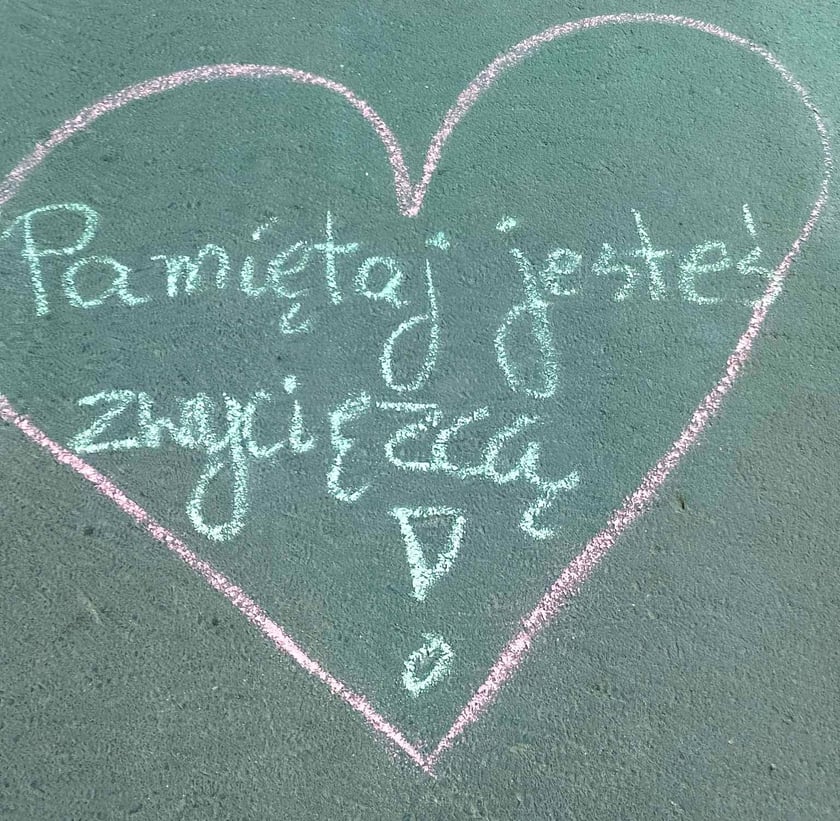 Pamiętaj jesteś
zwycięzcą
!